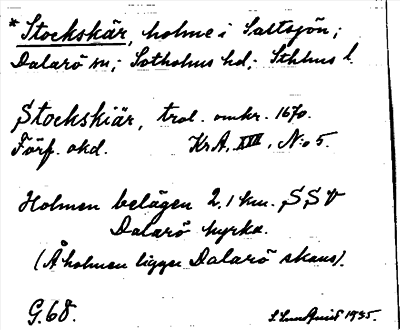 * Stockskär, holme i Saltsjön;
Dalarö sn; Sotholms hd; Sthlms l.
Stockskiär, trol. omkr. 1670.
Förf. okd. KrA, XIII, No 5.
Holmen belägen 2,1 km. SSV
Dalarö kyrka.
(Å holmen ligger Dalarö skans).
G. 68. 1935.